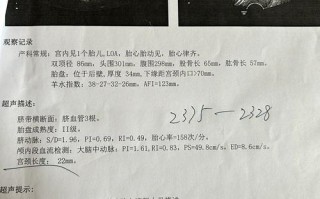 观察记录
产科常规：宫内见1个胎儿,LOA, 胎心胎动见, 胎心律齐。
双顶径 86mm, 头围301mm, 腹围298mm, 股骨长 65mm, 肱骨长 57mm。
胎盘：位于后壁,厚度 34mm,下缘距宫颈内口>70mm
羊水指数：38-27-32-26mm, AFI=123mm。
超声描述：
脐带横断面：脐血管3根。
胎盘成熟度：II级。
2375-2328
脐动脉：S/D=1.96, PI=0.69, RI=0.49, 胎心率=158次/分。
颅内段血流检测：大脑中动脉：PI=1.61,RI=0.83, PS=49.8cm/s, ED=8.6cm/s。
宫颈长度： 22mm。
超声提示：